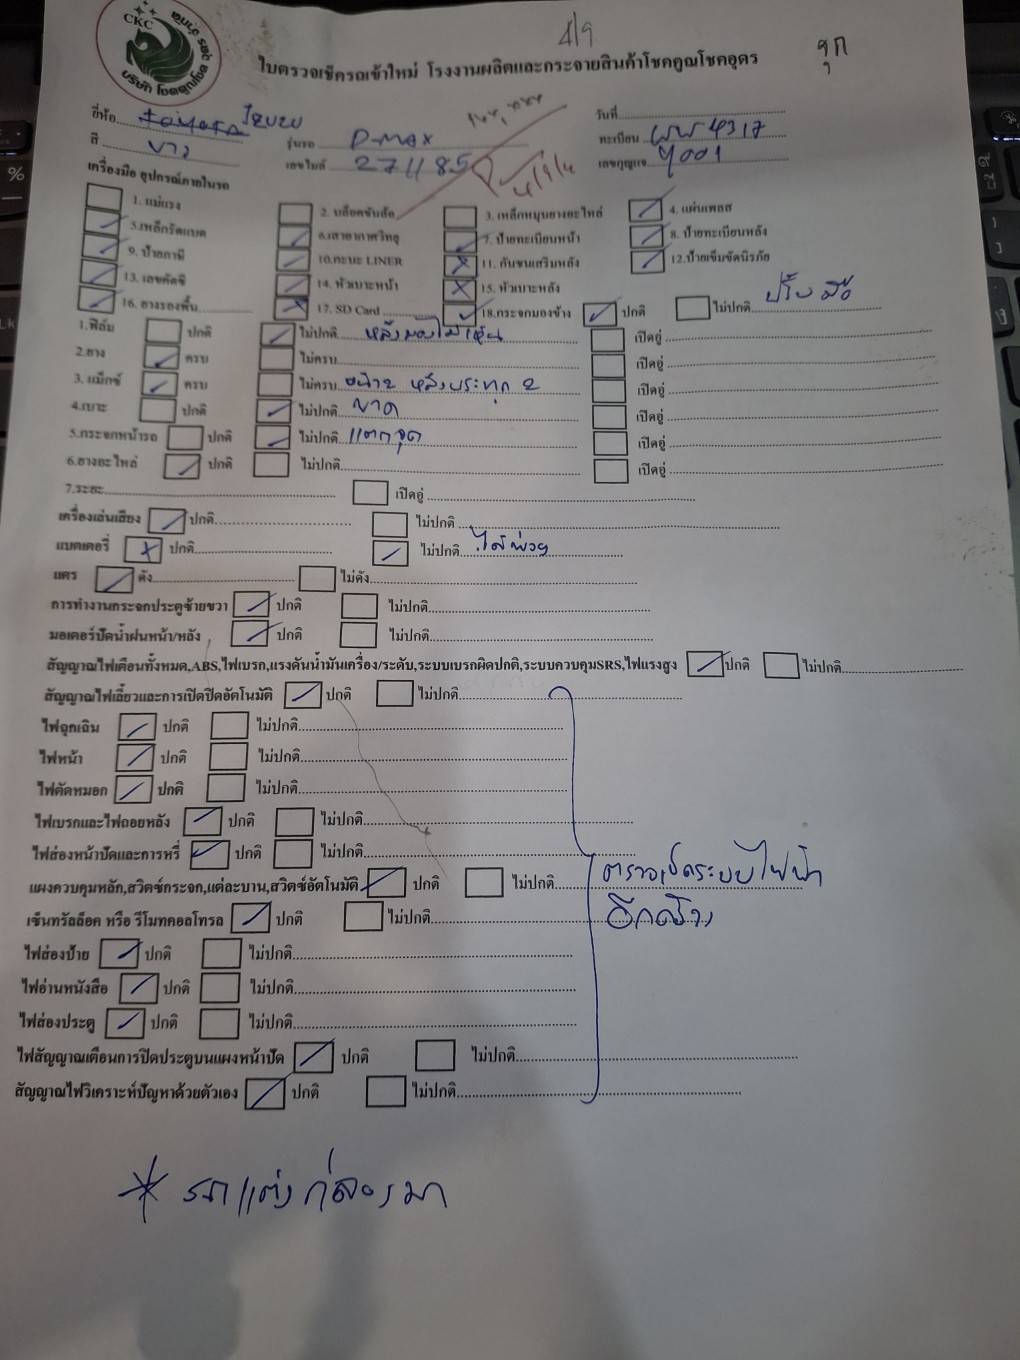 4/9
CKC
ใบตรวจเช็ครถเข้าใหม่ โรงงานผลิตและกระจายสินค้าโชคคูณโชคอุดร
ยี่ห้อ อีซูซุ วันที่
สี ขาว รุ่นรถ D-MAX ทะเบียน ผผ 4317
เลขไมล์ 271185 เลขกุญแจ ๆ001
เครื่องมือ อุปกรณ์ภายในรถ
1. แม่แรง 2. บล็อคขันล้อ 3. เหล็กหมุนยางอะไหล่ 4. แผ่นเพลส
5.เหล็กรัดแบต 6.เสาอากาศวิทยุ 7. ป้ายทะเบียนหน้า 8. ป้ายทะเบียนหลัง
9. ป้ายภาษี 10.กะบะ LINER 11. กันชนเสริมหลัง 12.ป้ายเข็มขัดนิรภัย
13. เลขคัดซี 14. หัวเบาะหน้า 15. หัวเบาะหลัง
16. ยางรองพื้น 17. SD Card 18.กระจกมองข้าง ปกติ ไม่ปกติ ปรับมือ
1.ฟิล์ม ปกติ ไม่ปกติ หลังมองไม่เห็น เปิดอู่
2.ยาง ครบ ไม่ครบ เปิดอู่
3. แม็กซ์ ครบ ไม่ครบ หน้า2 หลังบรรทุก 2 เปิดอู่
4.เบาะ ปกติ ไม่ปกติ ขาด เปิดอู่
5.กระจกหน้ารถ ปกติ ไม่ปกติ แตกจุด เปิดอู่
6.ยางอะไหล่ ปกติ ไม่ปกติ เปิดอู่
7.ระยะ เปิดอู่
เครื่องเล่นเสียง ปกติ ไม่ปกติ
แบตเตอรี่ ปกติ ไม่ปกติ ไส่พ่วง
แตร ดัง ไม่ดัง
การทำงานกระจกประตูซ้ายขวา ปกติ ไม่ปกติ
มอเตอร์ปัดน้ำฝนหน้า/หลัง ปกติ ไม่ปกติ
สัญญาณไฟเตือนทั้งหมด,ABS,ไฟเบรก,แรงดันน้ำมันเครื่อง/ระดับ,ระบบเบรกผิดปกติ,ระบบควบคุมSRS,ไฟแรงสูง ปกติ ไม่ปกติ
สัญญาณไฟเลี้ยวและการเปิดปิดอัตโนมัติ ปกติ ไม่ปกติ
ไฟฉุกเฉิน ปกติ ไม่ปกติ
ไฟหน้า ปกติ ไม่ปกติ
ไฟตัดหมอก ปกติ ไม่ปกติ
ไฟเบรกและไฟถอยหลัง ปกติ ไม่ปกติ
ไฟส่องหน้าปัดและการหรี่ ปกติ ไม่ปกติ
แผงควบคุมหลัก,สวิตซ์กระจก,แต่ละบาน,สวิตซ์อัตโนมัติ ปกติ ไม่ปกติ ตรวจเช็คระบบไฟฟ้า
เซ็นทรัลล็อค หรือ รีโมทคอลโทรล ปกติ ไม่ปกติ อีกครั้ง
ไฟส่องป้าย ปกติ ไม่ปกติ
ไฟอ่านหนังสือ ปกติ ไม่ปกติ
ไฟส่องประตู ปกติ ไม่ปกติ
ไฟสัญญาณเตือนการปิดประตูบนแผงหน้าปัด ปกติ ไม่ปกติ
สัญญาณไฟวิเคราะห์ปัญหาด้วยตัวเอง ปกติ ไม่ปกติ
* รถแต่งกล่องมา